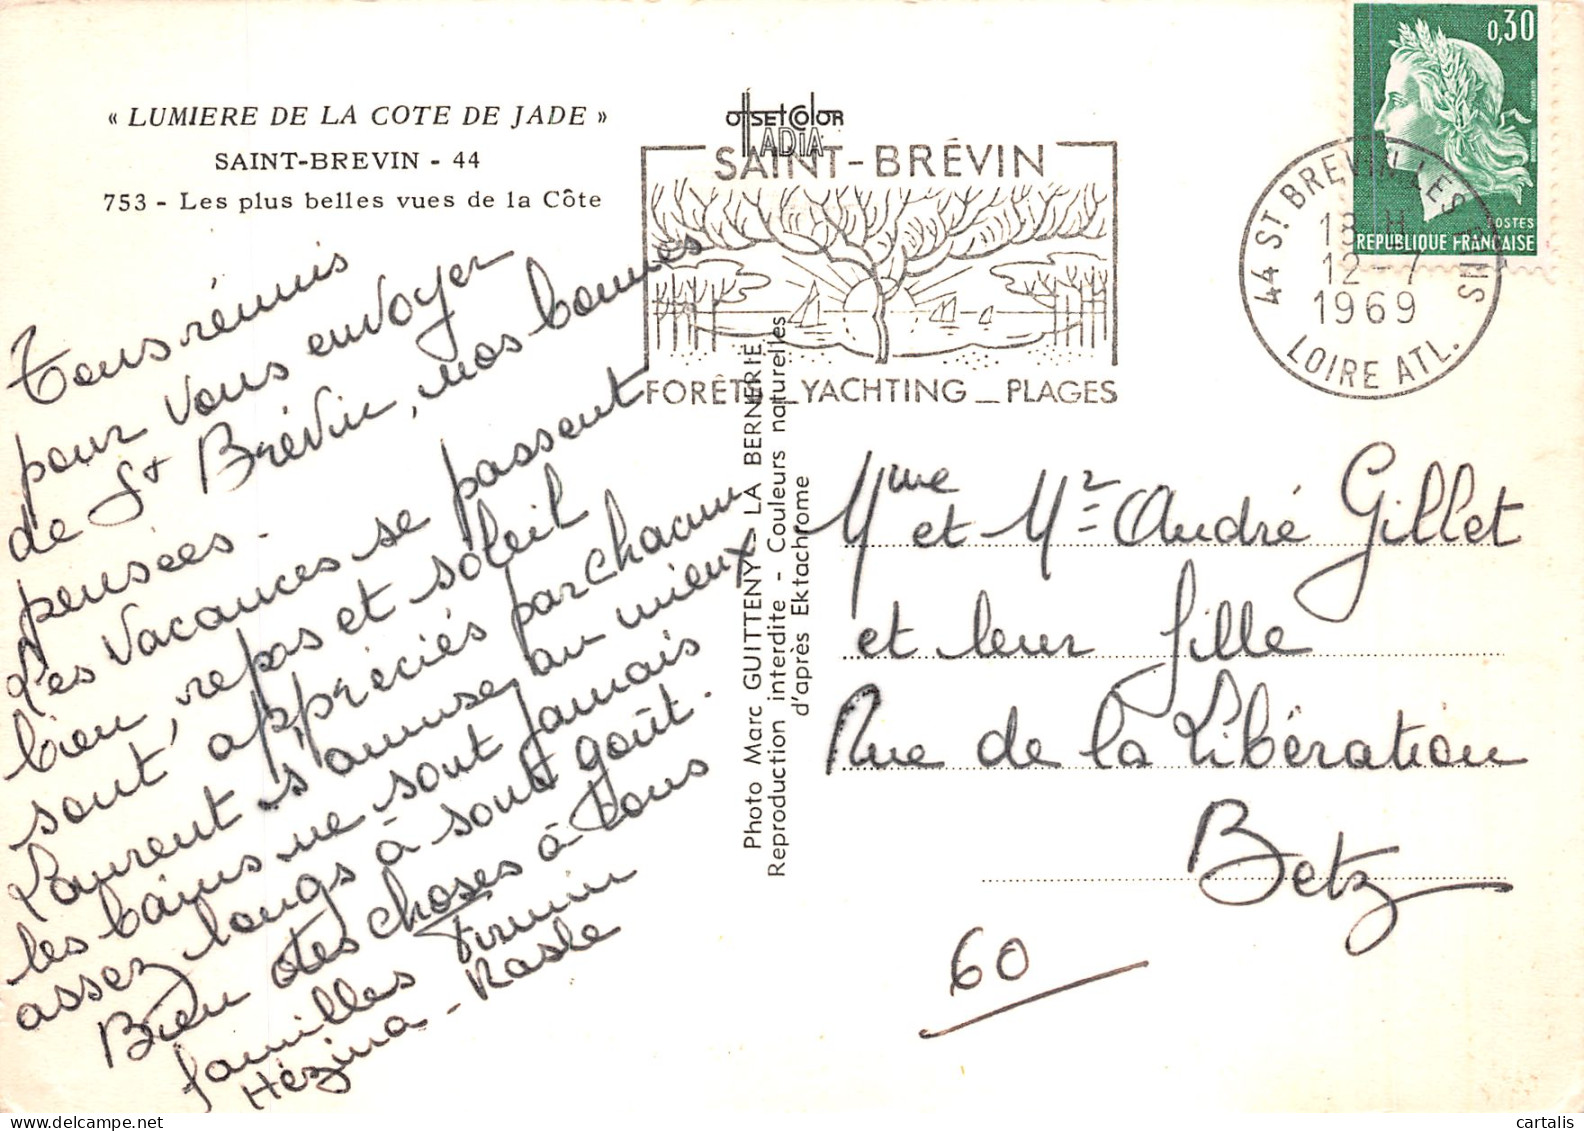 « LUMIERE DE LA COTE DE JADE »
SAINT-BREVIN - 44
753 - Les plus belles vues de la Côte
Tous réunis
pour vous envoyer
de St Brévin, nos bonnes
pensées.
Les vacances se passent
bien, repos et soleil
sont appréciés par chacun
Laurent s'amuse au mieux
les bains ne sont jamais
assez longs à son goût.
Bien des choses à tous
familles Firmin
Hézina - Rasle
OffsetColor
ADIA
SAINT-BRÉVIN
FORÊT _ YACHTING _ PLAGES
Photo Marc GUITTENY - LA BERNERIE
Reproduction interdite - Couleurs naturelles
d'après Ektachrome
0,30
POSTES
REPUBLIQUE FRANÇAISE
44 ST BREVIN LES PINS
18 H
12-7
1969
LOIRE ATL.
Mme et Mr André Gillet
et leur fille
Rue de la Libération
Betz
60
cartalis